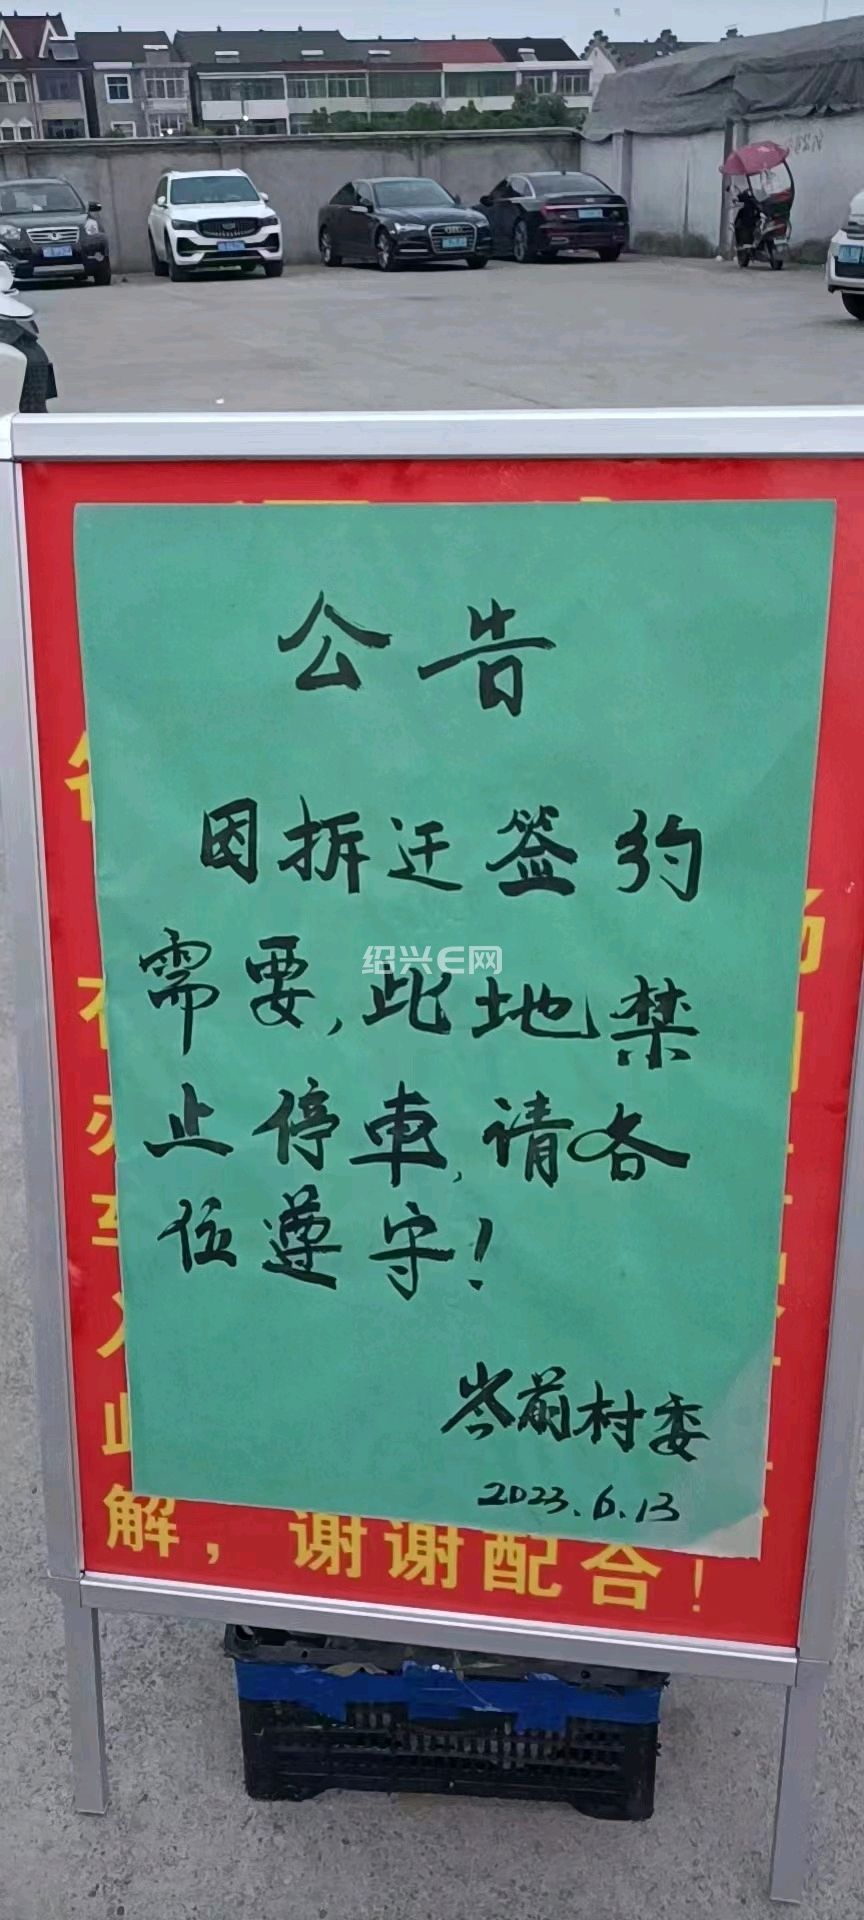 公告
因拆迁签约
需要,此地禁
止停車,请各
位遵守!
岑前村委
2023.6.13
解，谢谢配合！
绍兴E网